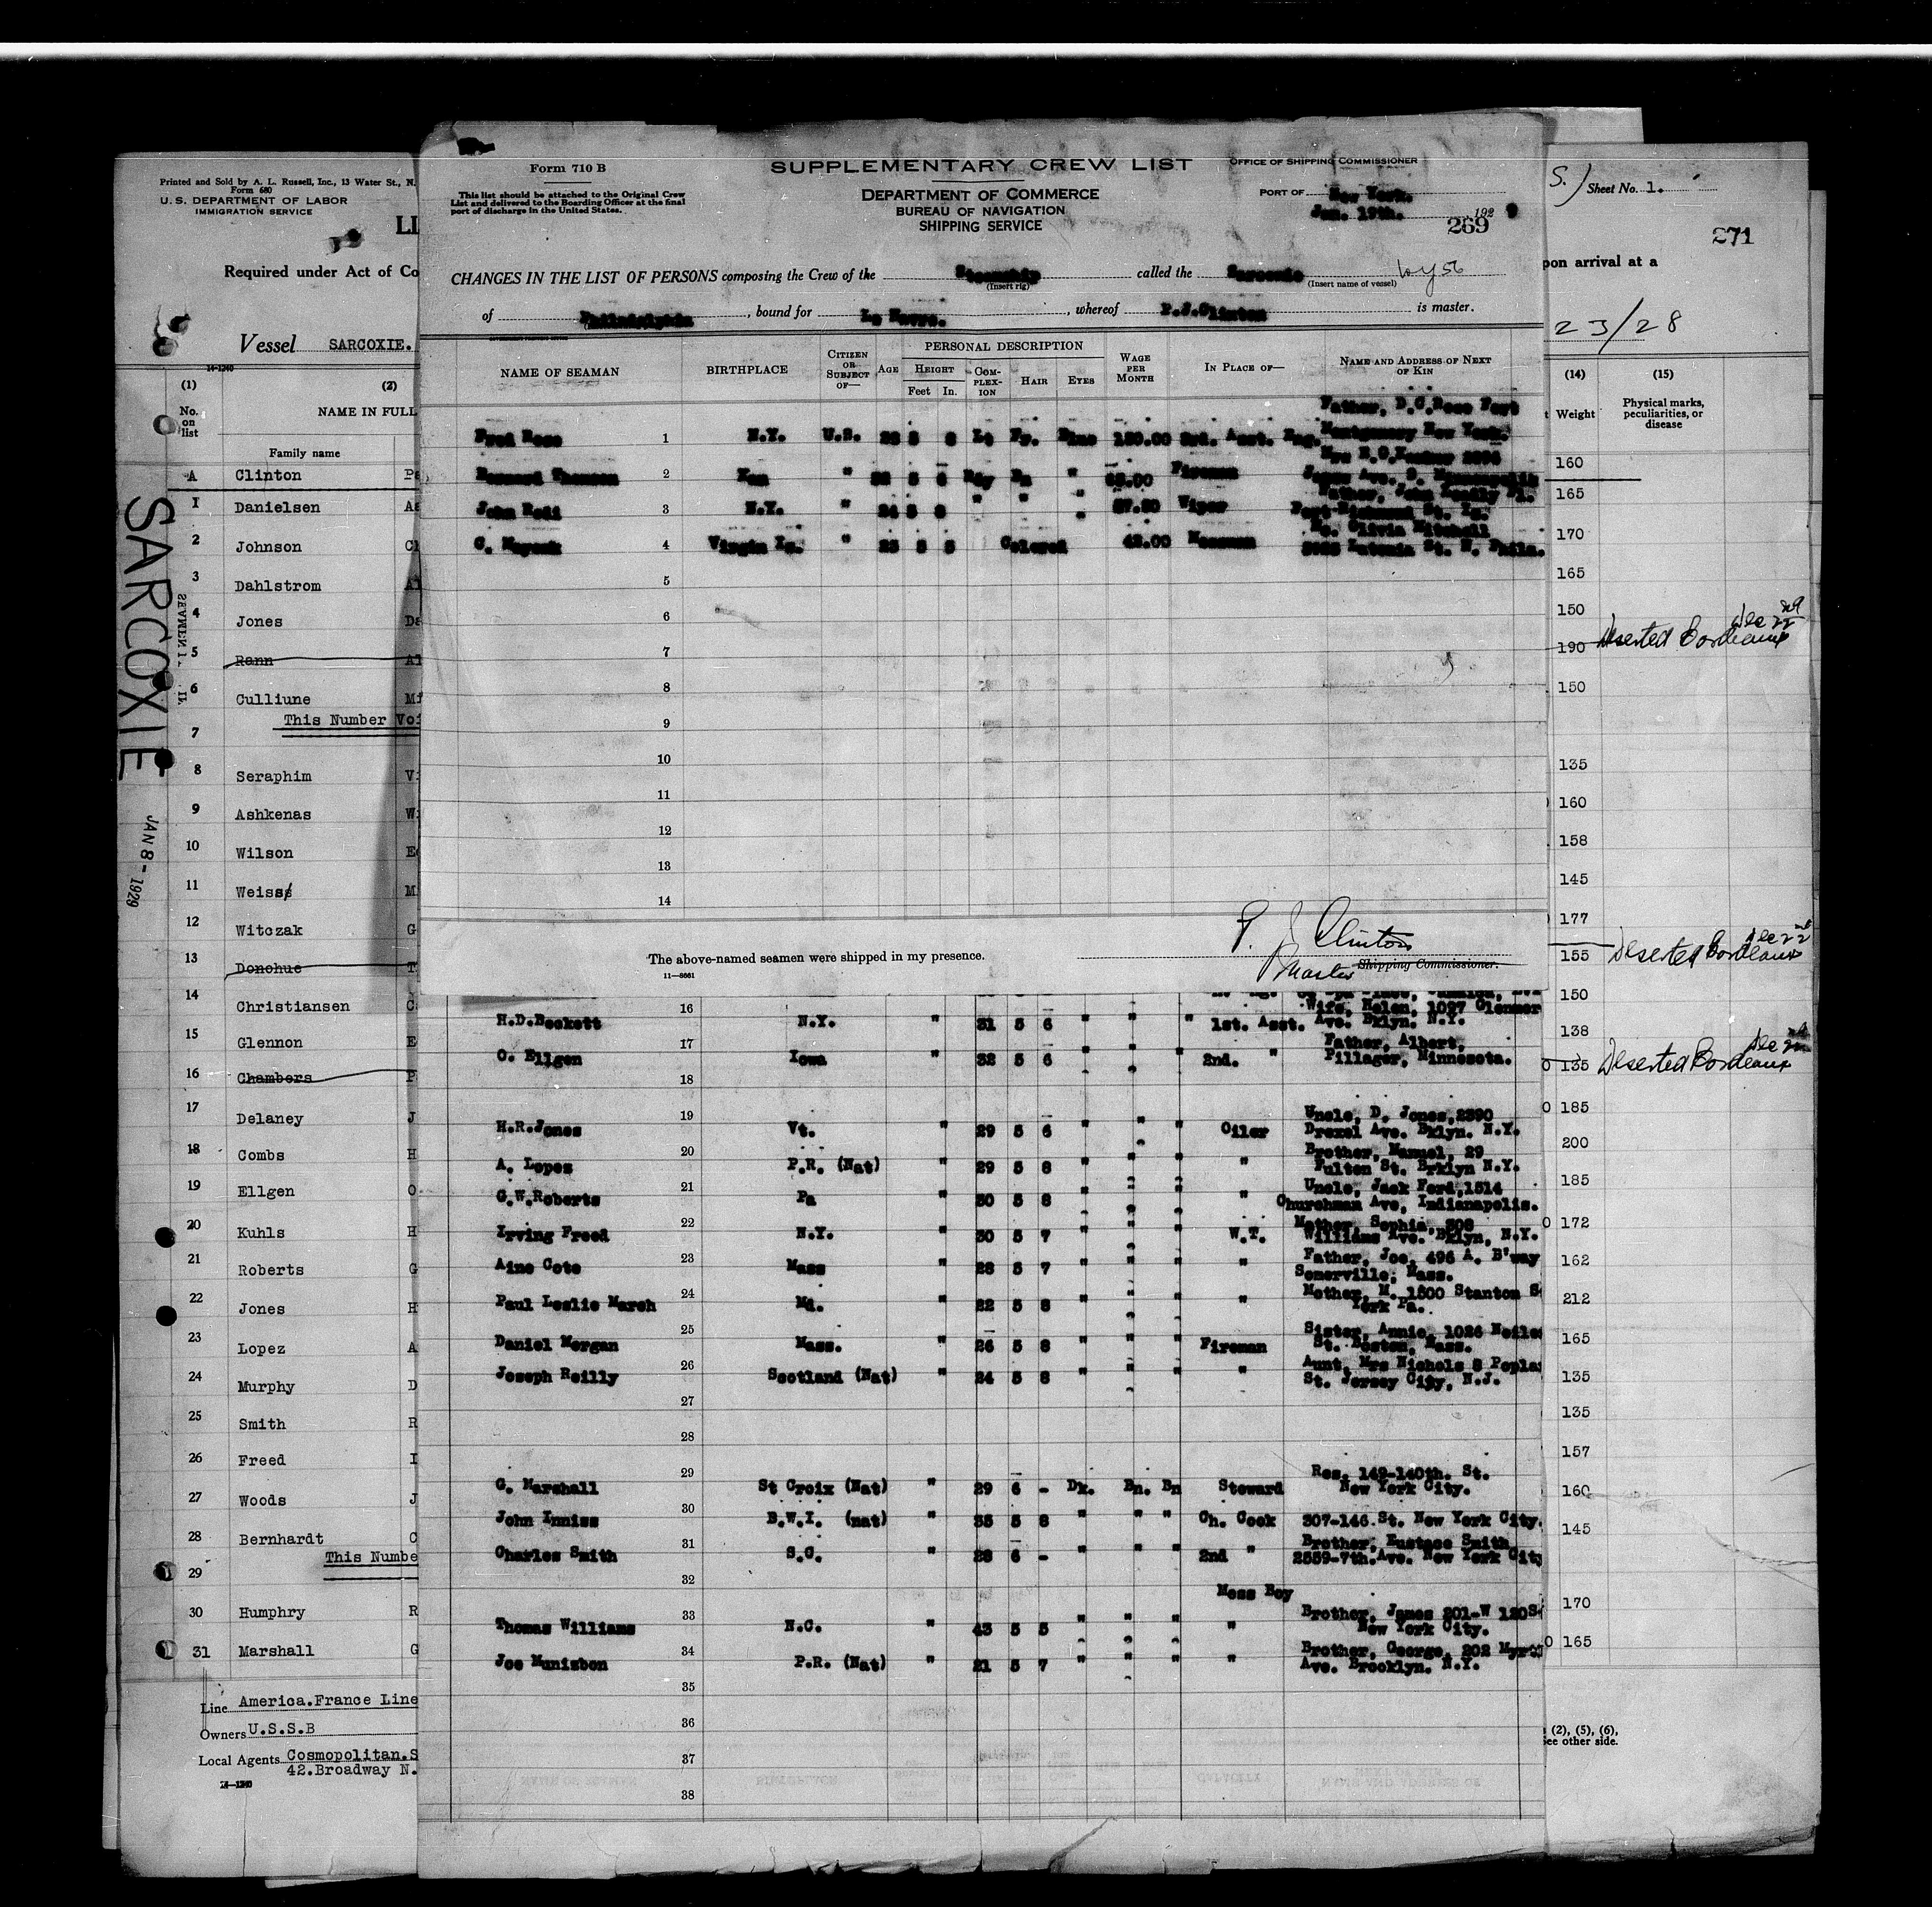 Printed and Sold by A. L. Russell, Inc., 13 Water St., N.
Form 680
U.S. DEPARTMENT OF LABOR
IMMIGRATION SERVICE
LI
Required under Act of Co
Vessel SARCOXIE.
14-1240
(1) (2)
No. on list
NAME IN FULL
Family name
A Clinton
1 Danielsen
2 Johnson
3 Dahlstrom
4 Jones
5 Rann
6 Culliune
This Number Voi
7
8 Seraphim
9 Ashkenas
10 Wilson
11 Weiss
12 Witczak
13 Donohue
14 Christiansen
15 Glennon
16 Chambers
17 Delaney
18 Combs
19 Ellgen
20 Kuhls
21 Roberts
22 Jones
23 Lopez
24 Murphy
25 Smith
26 Freed
27 Woods
28 Bernhardt
This Numbe
29
30 Humphry
31 Marshall
Line America.France Line
Owners U.S.S.B
Local Agents Cosmopolitan.S
42.Broadway N.
14-1240
SARCOXIE
JAN 8-1929
Form 710 B
This list should be attached to the Original Crew
List and delivered to the Boarding Officer at the final
port of discharge in the United States.
SUPPLEMENTARY CREW LIST
DEPARTMENT OF COMMERCE
BUREAU OF NAVIGATION
SHIPPING SERVICE
OFFICE OF SHIPPING COMMISSIONER
PORT OF New York.
Jan. 19th. 1929
269
CHANGES IN THE LIST OF PERSONS composing the Crew of the Steamship called the Sarcoxie
(Insert rig) (Insert name of vessel)
of Philadelphia, bound for Le Havre., whereof P.J.Clinton is master.
NAME OF SEAMAN BIRTHPLACE CITIZEN OR SUBJECT OF— AGE PERSONAL DESCRIPTION HEIGHT Feet In. COMPLEXION HAIR EYES WAGE PER MONTH IN PLACE OF— NAME AND ADDRESS OF NEXT OF KIN
Father, D.C.Rose Fort
Fred Rose 1 N.Y. U.S. Lt Blue 3rd. Asst. Eng. Montgomery New York.
Thomson 2 " " Fireman
3 N.Y. " " " " Wiper
4 Virgin Is. " Colored Messman
5
6
7
8
9
10
11
12
13
14
The above-named seamen were shipped in my presence.
P. J Clinton
Master Shipping Commissioner.
11—8661
16 Wife, Helen, 1027
H.D.Beckett N.Y. " 31 5 6 " " " 1st. Asst. Ave. Bklyn. N.Y.
17 Father, Albert,
O. Ellgen Iowa " 32 5 6 " " " 2nd. " Pillager, Minnesota.
18
19 Uncle, D. Jones,2390
H.R.Jones Vt. " 29 5 6 " " " Oiler Drexel Ave. Bklyn. N.Y.
20 Brother, Manuel, 29
A. Lopez P.R. (Nat) " 29 5 8 " " " " Fulton St. Brklyn N.Y.
21 Uncle, Jack Ford,1514
G.W.Roberts Pa " 30 5 8 " " " " Churchman Ave, Indianapolis.
22 Mother, Sophia, 308
Irving Freed N.Y. " 30 5 7 " " " W.T. Williams Ave. Bklyn, N.Y.
23 Father, Joe, 496 A. B'way
Aime Cote Mass " 28 5 7 " " " " Somerville, Mass.
24 Mother, M. 1800 Stanton S
Paul Leslie March Md. " 22 5 8 " " " " York Pa.
25 Sister, Annie, 1026
Daniel Morgan Mass. " 26 5 8 " " " Fireman St. Boston, Mass.
26 Aunt, Mrs Nichols 8 Popla
Joseph Reilly Scotland (Nat) " 24 5 8 " " " " St. Jersey City, N.J.
27
28
29 Res. 149-140th. St.
G. Marshall St Croix (Nat) " 29 6 - Dk. Bn. Bn Steward New York City.
30
John Inniss B.W.I. (nat) " 35 5 8 " " " Ch. Cook 307-146 St. New York City.
31 Brother, Eustace Smith
Charles Smith S.C. " 28 6 - " " " 2nd " 2559-7th.Ave. New York City
32 Mess Boy
33 Brother, James 201-W 120S
Thomas Williams N.C. " 43 5 5 " " " " New York City.
34 Brother, George, 202 Myrt
Joe Munisbon P.R. (Nat) " 21 5 7 " " " " Ave. Brooklyn. N.Y.
35
36
37
38
S.) Sheet No. 1.
271
pon arrival at a
23/28
(14) (15)
Weight Physical marks, peculiarities, or disease
160
165
170
165
150
190 Deserted Bordeaux Dec 22nd
150
135
160
158
145
177
155 Deserted Bordeaux Dec 22nd
150
138
135 Deserted Bordeaux Dec 22nd
185
200
185
172
162
212
165
135
135
157
160
145
170
165
(2), (5), (6),
See other side.